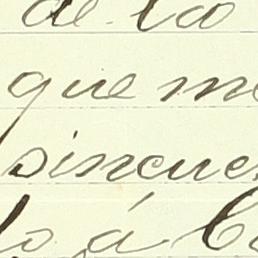 de la
que me
sincue
lo á C